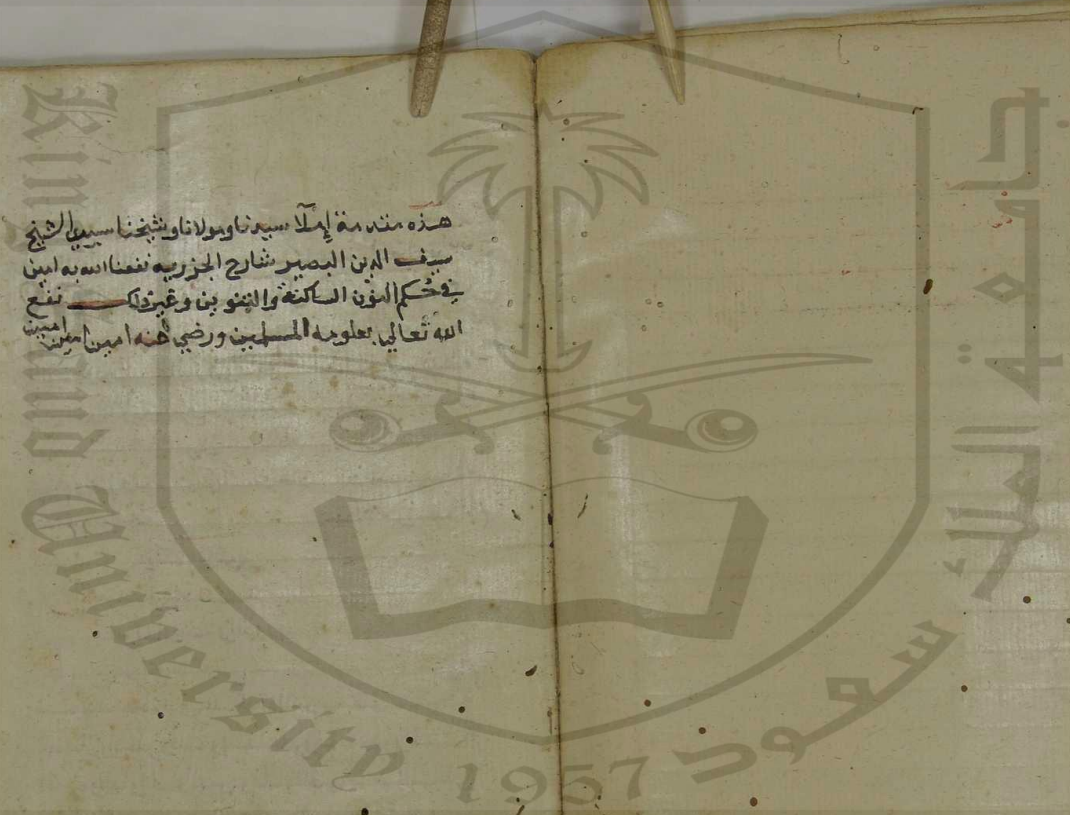 هذه مقدمة إملآ سيدنا ومولانا وشيخنا سيدي الشيخ
سيف الدين البصير شارح الجزريه نفعنا الله به امين
في حُكم النون الساكنة والتنوين وغير ذلك نفع
الله تعالي بعلومه المسلمين ورضي عنه امين امين امين
جامعة الملك سعود
King Saud University
1957